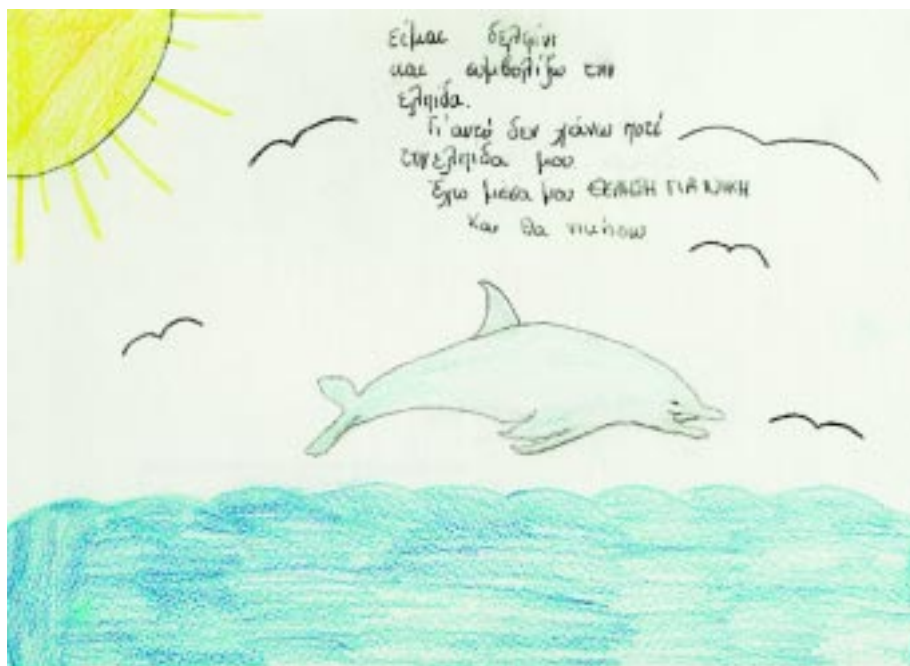 είμαι δελφίνι
και συμβολίζω την
ελπιδα.
Γι'αυτό δεν χάνω ποτέ
την ελπιδα μου
Έχω μεσα μου ΘΕΛΗΣΗ ΓΙΑ ΝΙΚΗ
Και θα νικήσω